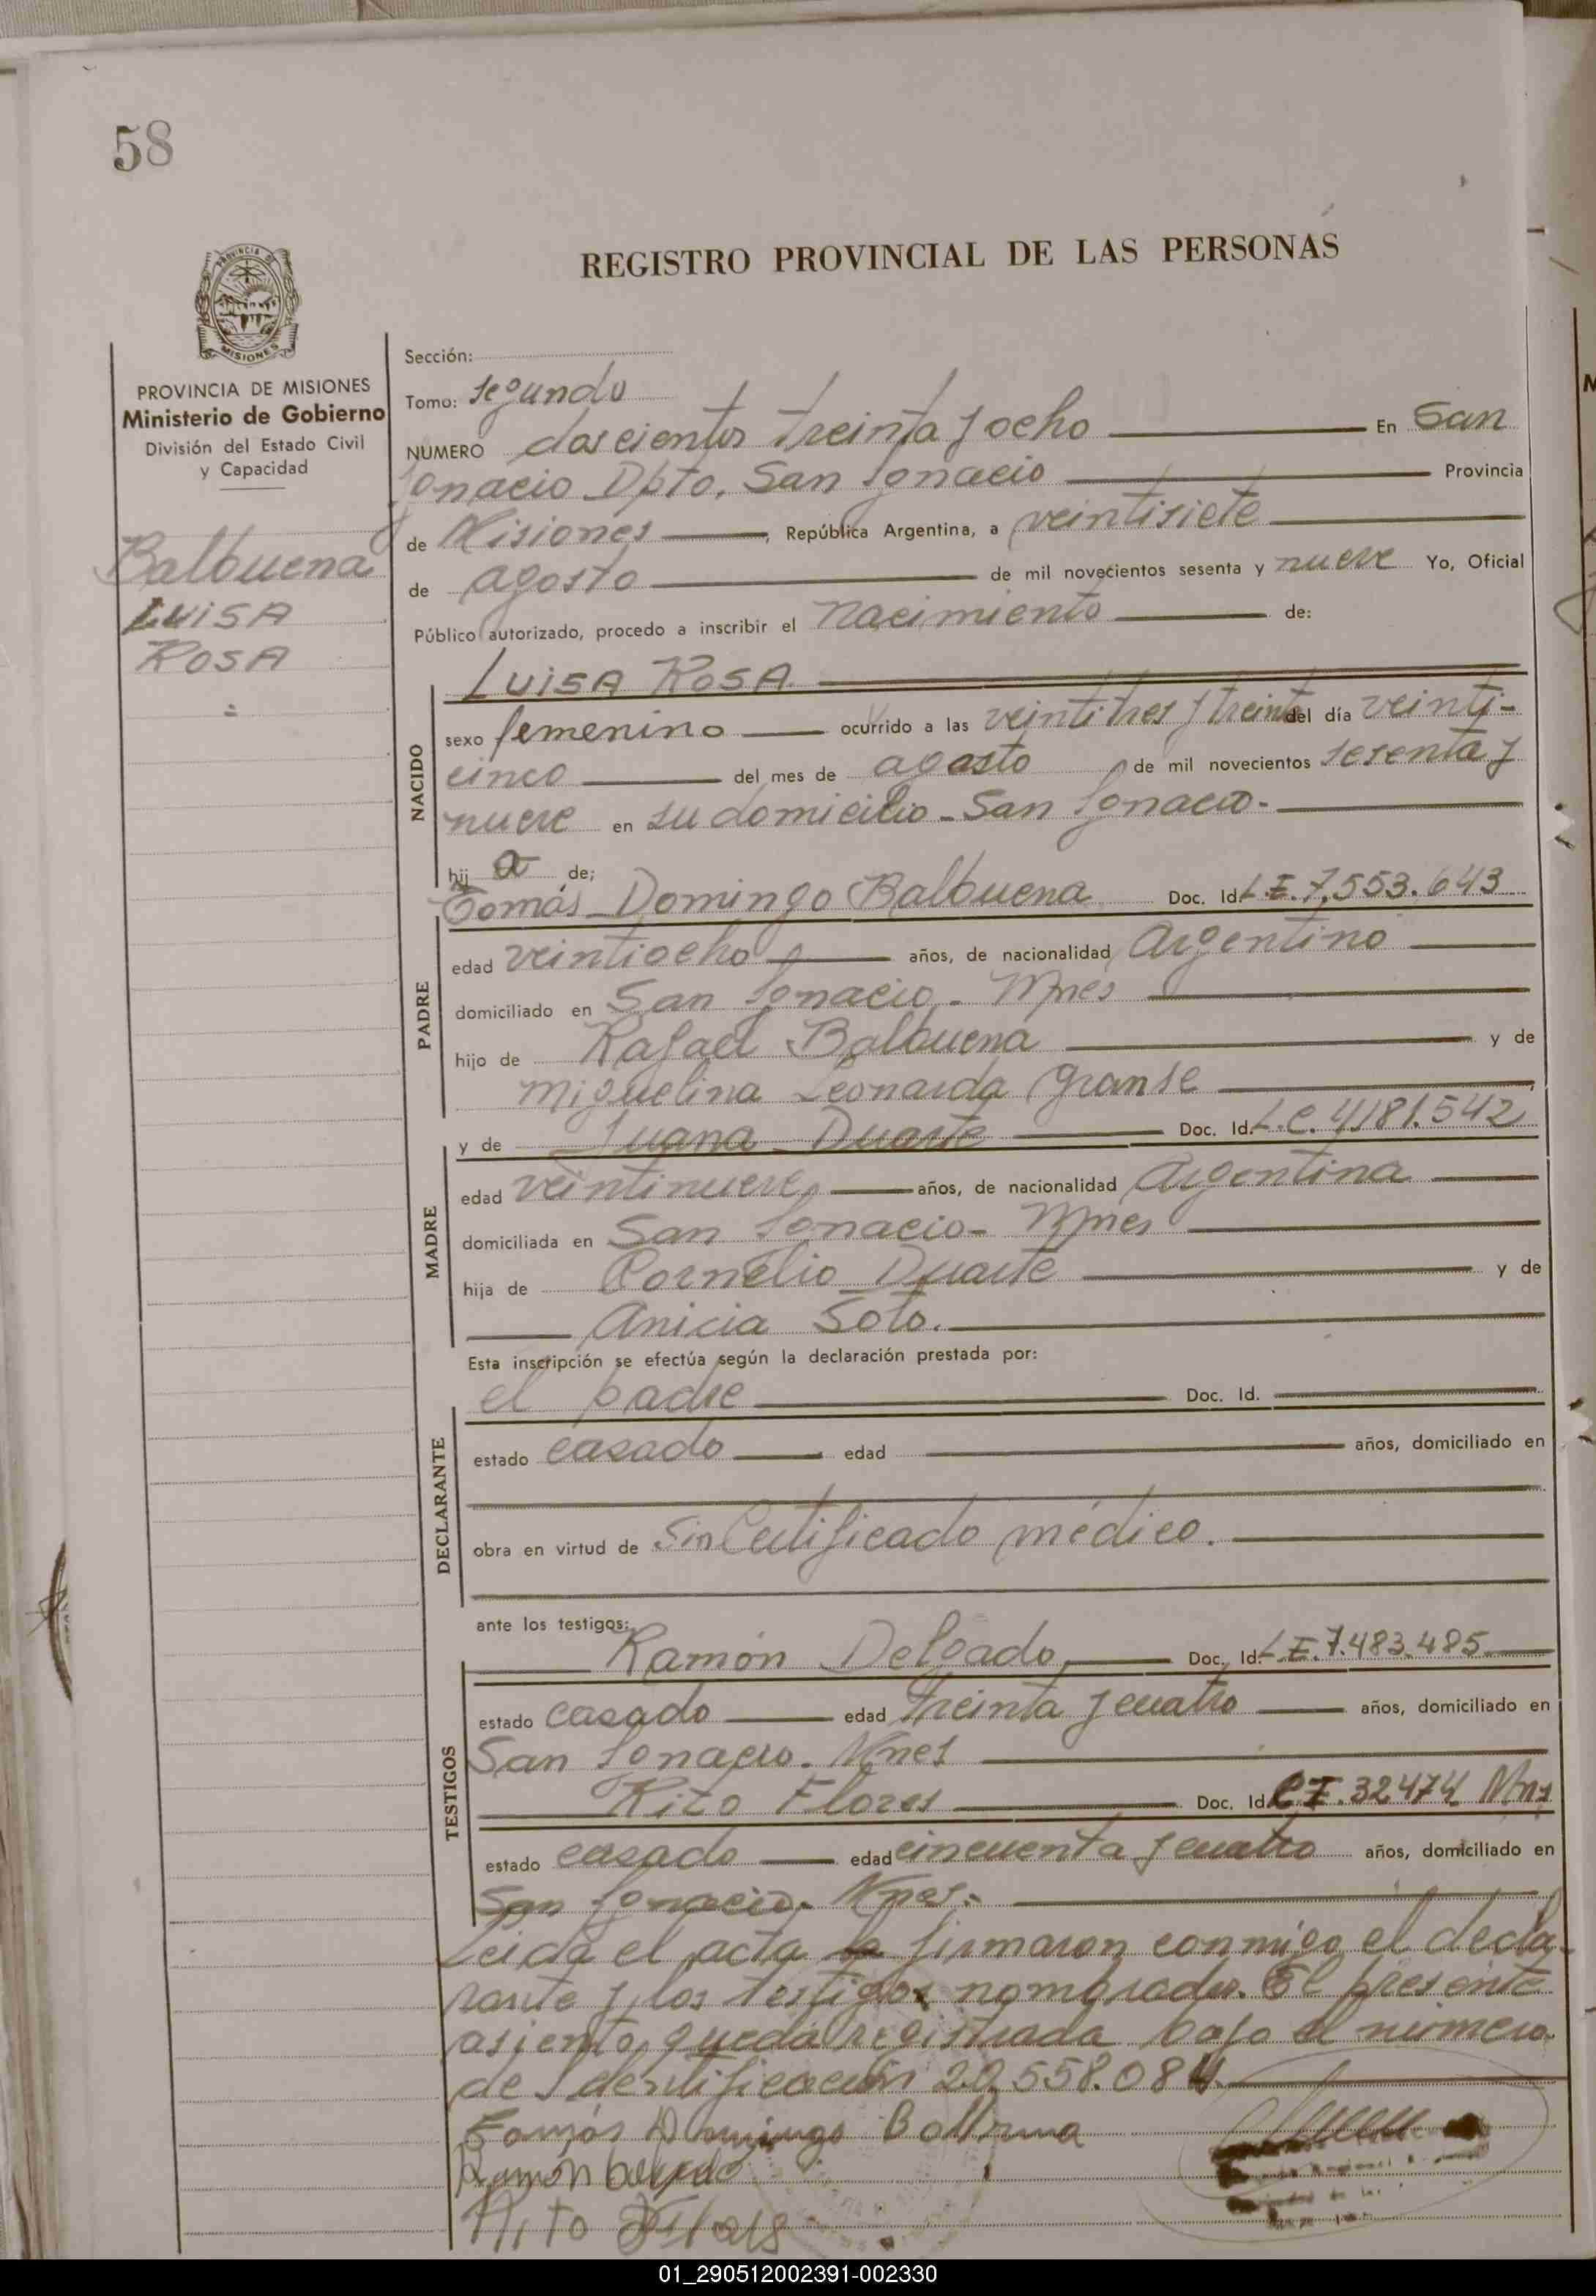 58
REGISTRO PROVINCIAL DE LAS PERSONAS
PROVINCIA DE
MISIONES
PROVINCIA DE MISIONES
Ministerio de Gobierno
División del Estado Civil
y Capacidad
Balbuena
LUISA
ROSA
=
Sección:
Tomo: Segundo
NUMERO doscientos treinta y ocho En San
Ignacio Dpto. San Ignacio Provincia
de Misiones, República Argentina, a veintisiete
de agosto de mil novecientos sesenta y nueve Yo, Oficial
Público autorizado, procedo a inscribir el nacimiento de:
NACIDO
LUISA ROSA
sexo femenino ocurrido a las veintitres y treinta del día veinti-
cinco del mes de agosto de mil novecientos sesenta y
nueve en su domicilio - San Ignacio.-
hij a de;
PADRE
Tomás Domingo Balbuena Doc. Id. L.E. 7.553.643
edad veintiocho años, de nacionalidad Argentino
domiciliado en San Ignacio - Mnes
hijo de Rafael Balbuena y de
Miguelina Leonarda Granse
MADRE
y de Juana Duarte Doc. Id. L.C. 4.181.542
edad veintinueve años, de nacionalidad Argentina
domiciliada en San Ignacio - Mnes
hija de Cornelio Duarte y de
Anicia Soto.
Esta inscripción se efectúa según la declaración prestada por:
DECLARANTE
el padre Doc. Id.
estado casado edad años, domiciliado en
obra en virtud de Sin Certificado médico.
ante los testigos:
TESTIGOS
Ramón Delgado Doc. Id. L.E. 7.483.485
estado casado edad treinta y cuatro años, domiciliado en
San Ignacio. Mnes
Rito Flores Doc. Id. C.I. 32474 Mns
estado casado edad cincuenta y cuatro años, domiciliado en
San Ignacio - Mnes.-
Leida el acta la firmaron conmigo el decla-
rante y los testigos nombrados. El presente
asiento queda registrada bajo el número
de Identificación 20.558.084.
Tomás Domingo Balbuena
Ramón Delgado
Rito Flores
01_290512002391-002330